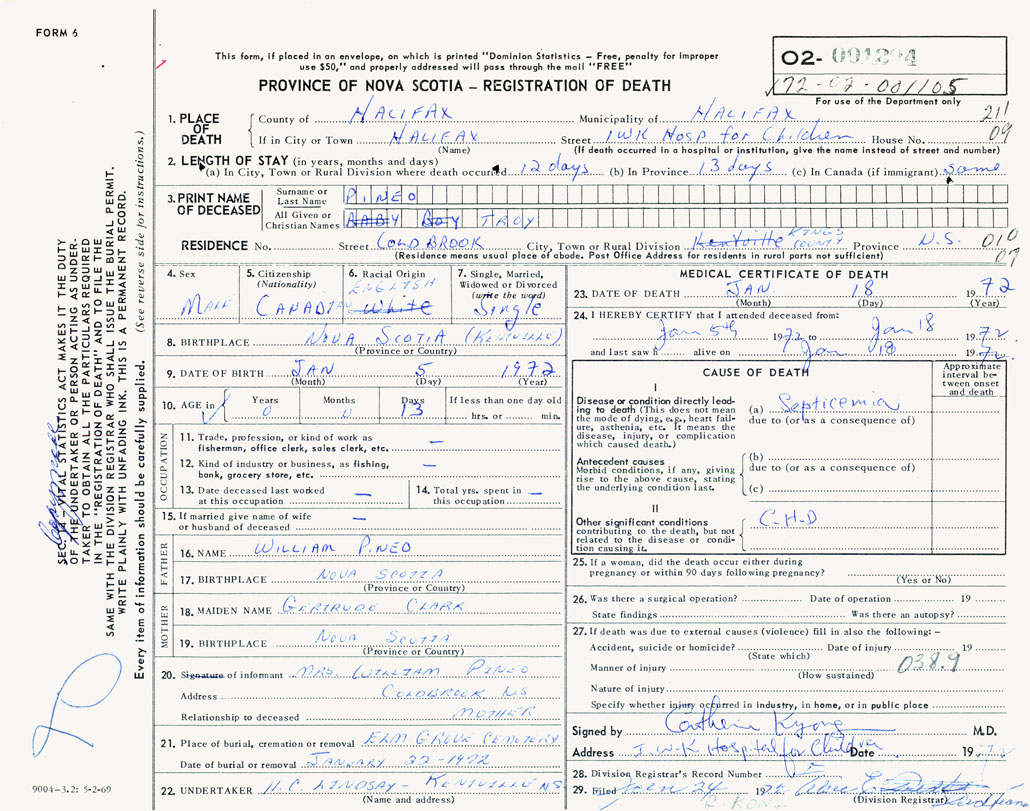 FORM 6
This form, if placed in an envelope, on which is printed "Dominion Statistics — Free, penalty for improper
use $50," and properly addressed will pass through the mail "FREE"
PROVINCE OF NOVA SCOTIA — REGISTRATION OF DEATH
02- 001204
172-02-001105
For use of the Department only
1. PLACE OF DEATH
County of HALIFAX Municipality of HALIFAX 211
If in City or Town HALIFAX Street IWK Hosp for Children House No. 09
(Name) (If death occurred in a hospital or institution, give the name instead of street and number)
2. LENGTH OF STAY (in years, months and days)
(a) In City, Town or Rural Division where death occurred 12 days (b) In Province 13 days (c) In Canada (if immigrant) same
3. PRINT NAME OF DECEASED
Surname or Last Name PINEO
All Given or Christian Names BABY BOY TROY
RESIDENCE No. Street COLDBROOK City, Town or Rural Division Kentville KINGS COUNTY Province N.S. 010
(Residence means usual place of abode. Post Office Address for residents in rural parts not sufficient) 07
4. Sex MALE
5. Citizenship (Nationality) CANADIAN
6. Racial Origin ENGLISH White
7. Single, Married, Widowed or Divorced (write the word) Single
8. BIRTHPLACE NOVA SCOTIA (KENTVILLE)
(Province or Country)
9. DATE OF BIRTH JAN 5 1972
(Month) (Day) (Year)
10. AGE in Years 0 Months 0 Days 13 If less than one day old hrs. or min.
OCCUPATION
11. Trade, profession, or kind of work as
fisherman, office clerk, sales clerk, etc. —
12. Kind of industry or business, as fishing,
bank, grocery store, etc. —
13. Date deceased last worked
at this occupation —
14. Total yrs. spent in
this occupation —
15. If married give name of wife
or husband of deceased —
FATHER
16. NAME WILLIAM PINEO
17. BIRTHPLACE NOVA SCOTIA
(Province or Country)
MOTHER
18. MAIDEN NAME GERTRUDE CLARK
19. BIRTHPLACE NOVA SCOTIA
(Province or Country)
20. Signature of informant MRS. WILLIAM PINEO
Address COLDBROOK NS
Relationship to deceased MOTHER
21. Place of burial, cremation or removal ELM GROVE CEMETERY
Date of burial or removal JANUARY 22-1972
22. UNDERTAKER H.C. LINDSAY - KENTVILLE NS
(Name and address)
MEDICAL CERTIFICATE OF DEATH
23. DATE OF DEATH JAN. 18 1972
(Month) (Day) (Year)
24. I HEREBY CERTIFY that I attended deceased from:
Jan 5th 1972 to Jan 18 1972
and last saw h alive on Jan 18 1972
CAUSE OF DEATH
Approximate interval between onset and death
I
Disease or condition directly leading to death (This does not
the mode of dying, e.g., heart failure, asthenia, etc. It means the
disease, injury, or complication
which caused death.)
(a) Septicemia
due to (or as a consequence of)
Antecedent causes
Morbid conditions, if any, giving
rise to the above cause, stating
the underlying condition last.
(b)
due to (or as a consequence of)
(c)
II
Other significant conditions
contributing to the death, but not
related to the disease or condition causing it.
C.H.D
25. If a woman, did the death occur either during
pregnancy or within 90 days following pregnancy?
(Yes or No)
26. Was there a surgical operation? Date of operation 19
State findings Was there an autopsy?
27. If death was due to external causes (violence) fill in also the following: —
Accident, suicide or homicide? Date of injury 19
(State which)
Manner of injury 038.9
(How sustained)
Nature of injury
Specify whether injury occurred in industry, in home, or in public place
Signed by M.D.
Address I.W.K Hospital for Children Date 1972
28. Division Registrar's Record Number
29. Filed Jan 24 197
(Division Registrar)
SEC. 14 - VITAL STATISTICS ACT MAKES IT THE DUTY
OF THE UNDERTAKER OR PERSON ACTING AS UNDERTAKER TO OBTAIN ALL THE PARTICULARS REQUIRED
IN THE "REGISTRATION OF DEATH" AND TO FILE THE
SAME WITH THE DIVISION REGISTRAR WHO SHALL ISSUE THE BURIAL PERMIT.
WRITE PLAINLY WITH UNFADING INK. THIS IS A PERMANENT RECORD.
Every item of information should be carefully supplied. (See reverse side for instructions.)
9004-3.2: 5-2-69